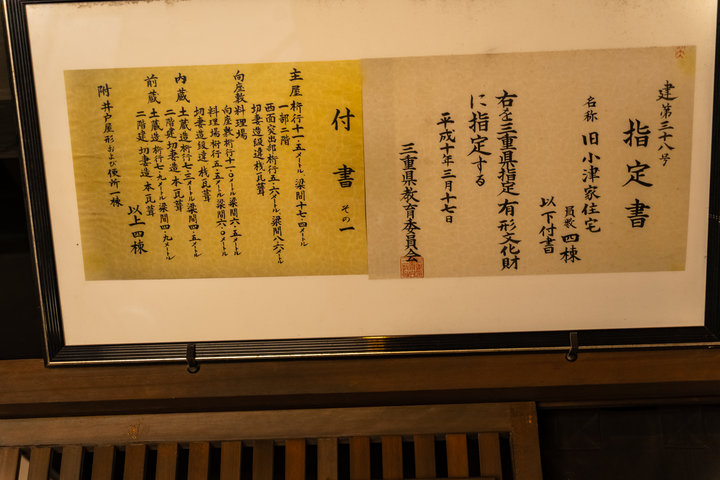 建第三十八号
指定書
名称 旧小津家住宅
員数 四棟
以下付書
右を三重県指定有形文化財
に指定する
平成十年三月十七日
三重県教育委員会
付書 その一
主屋 桁行十一・五メートル 梁間十七・四メートル
一部二階
西面突出部桁行五・六メートル梁間八・六メートル
切妻造段違桟瓦葺
向座敷料理場
向座敷桁行十一・〇メートル梁間六・五メートル
料理場桁行五・五メートル梁間六・〇メートル
切妻造段違 桟瓦葺
内蔵 土蔵造桁行七・三メートル梁間四・五メートル
二階建 切妻造 本瓦葺
前蔵 土蔵造桁行七・九メートル梁間四・九メートル
二階建 切妻造 本瓦葺
以上四棟
附 井戸屋形および便所一棟